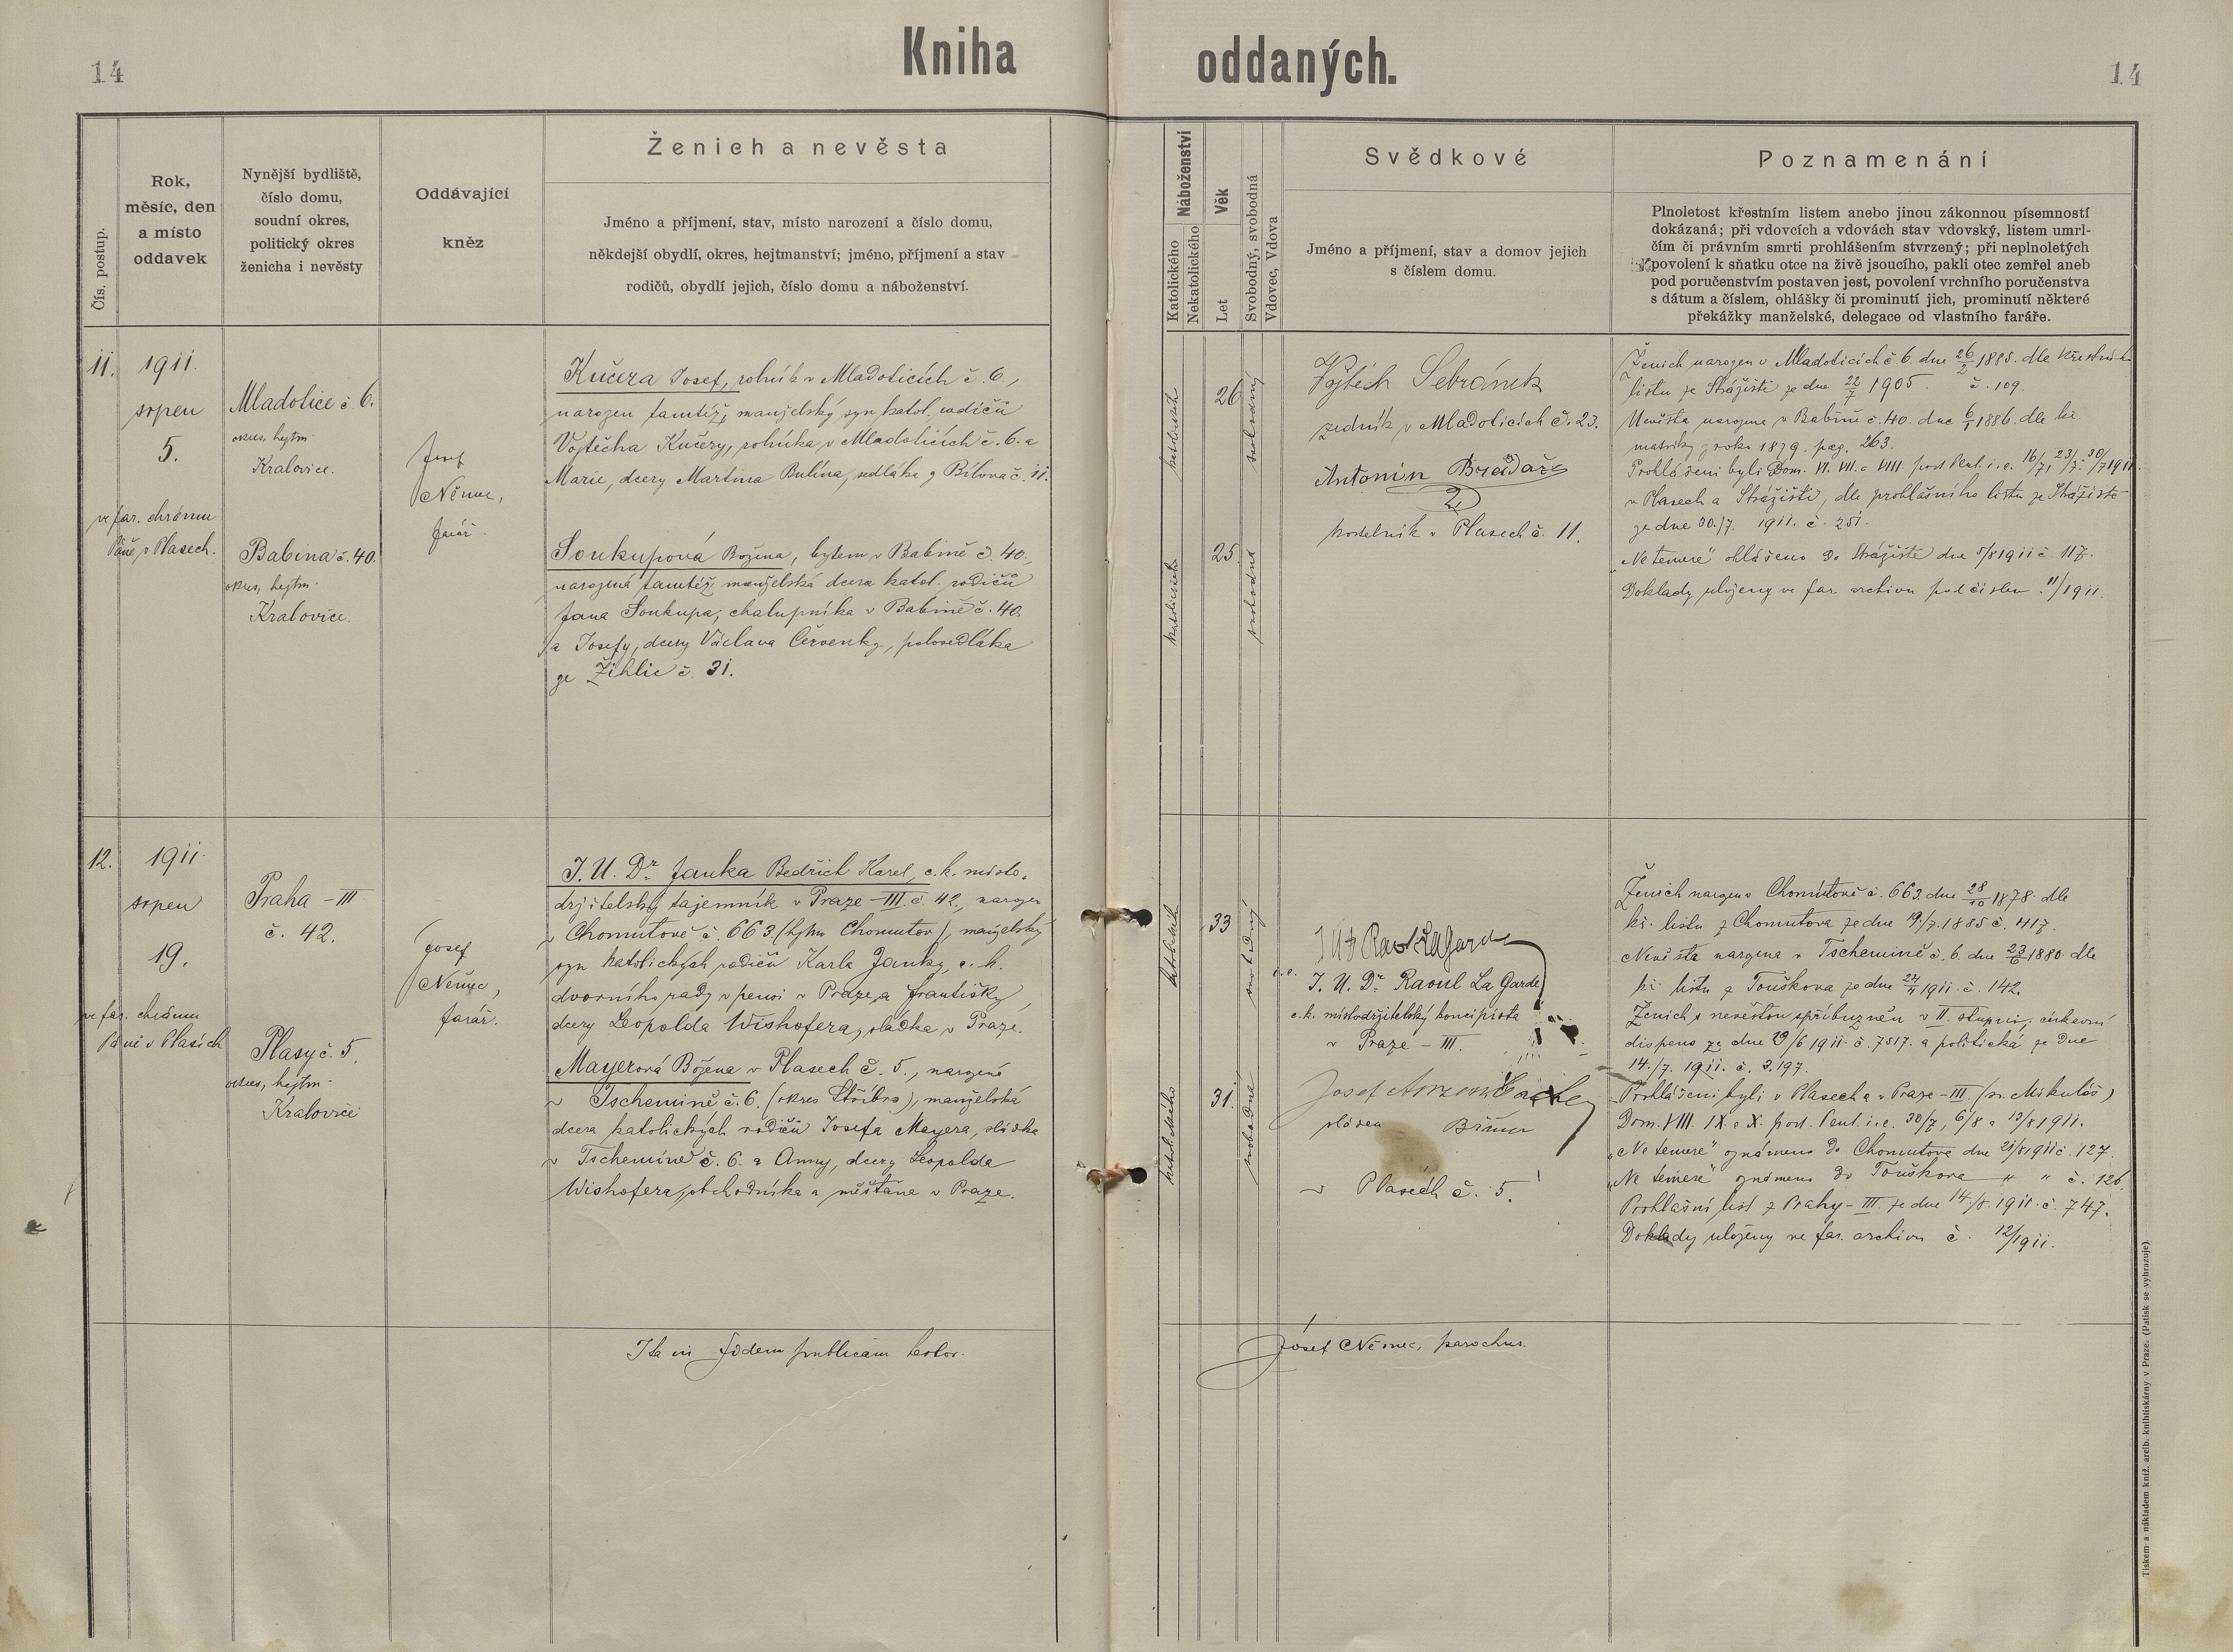 14
Kniha oddaných.
14
Čís. postup.
Rok,
měsíc, den
a místo
oddavek
Nynější bydliště,
číslo domu,
soudní okres,
politický okres
ženicha i nevěsty
Oddávající
kněz
Ženich a nevěsta
Jméno a příjmení, stav, místo narození a číslo domu,
někdejší obydlí, okres, hejtmanství; jméno, příjmení a stav
rodičů, obydlí jejich, číslo domu a náboženství.
Náboženství
Katolického
Nekatolického
Věk
Let
Svobodný, svobodná
Vdovec, Vdova
Svědkové
Jméno a příjmení, stav a domov jejich
s číslem domu.
Poznamenání
Plnoletost křestním listem anebo jinou zákonnou písemností
dokázaná; při vdovcích a vdovách stav vdovský, listem umrl-
čím či právním smrti prohlášením stvrzený; při neplnoletých
povolení k sňatku otce na živě jsoucího, pakli otec zemřel aneb
pod poručenstvím postaven jest, povolení vrchního poručenstva
s dátum a číslem, ohlášky či prominutí jich, prominutí některé
překážky manželské, delegace od vlastního faráře.
11.
1911.
srpen
5.
ve far. chrámu
Páně v Plasech.
Mladotice č. 6.
okres, hejtm.
Kralovice.
Babina č. 40.
okres, hejtm.
Kralovice.
Josef
Němec,
farář.
Kučera Josef, rolník v Mladoticích č. 6,
narozen tamtéž, manželský syn katol. rodičů
Vojtěcha Kučery, rolníka v Mladoticích č. 6. a
Marie, dcery Martina Bulína, sedláka z Bílova č. 11.
Soukupová Božena, bytem v Babině č. 40,
narozená tamtéž, manželská dcera katol. rodičů
Jana Soukupa, chalupníka v Babině č. 40.
a Josefy, dcery Václava Červenky, polosedláka
ze Žihlic č. 31.
katolického
26
svobodný
katolického
25
svobodná
Vojtěch Sebránek
zedník v Mladoticích č. 23.
Antonín Bradáč
kostelník v Plasech č. 11.
Ženich narozen v Mladoticích č. 6. dne 26/2 1885. dle křestního
listu ze Strážiště ze dne 22/7 1905. č. 109.
Nevěsta narozena v Babině č. 40. dne 6/1 1886. dle kř.
matriky z roku 1879. pag. 263.
Prohlášeni byli Dom. VI. VII. a VIII. post Pent. i. e. 16/7, 23/7, 30/7 1911.
v Plasech a Strážišti, dle prohlášního listu ze Strážiště
ze dne 30./7. 1911. č. 251.
„Ne temere" ohlášeno do Strážiště dne 5/8 1911 č. 117.
Doklady uloženy ve far. archivu pod číslem 11/1911.
12.
1911.
srpen
19.
ve far. chrámu
Páně v Plasích
Praha - III
č. 42.
Plasy č. 5.
okres, hejtm.
Kralovice
Josef
Němec,
farář.
J. U. Dr. Janka Bedřich Karel, c. k. místo-
držitelský tajemník v Praze - III. č. 42., narozen
v Chomutově č. 663. (hejtm. Chomutov), manželský
syn katolických rodičů Karla Janky, c. k.
dvorního rady v pensi v Praze, a Františky,
dcery Leopolda Wishofera, sládka v Praze.
Mayerová Božena v Plasech č. 5., narozená
v Tschemině č. 6. (okres Stříbro), manželská
dcera katolických rodičů Josefa Mayera, sládka
v Tschemině č. 6. a Anny, dcery Leopolda
Wishofera, obchodníka a měšťana v Praze.
katolického
33
svobodný
katolického
31.
svobodná
i. e.
J. U. Dr. Raoul La Garde
c. k. místodržitelský koncipista
v Praze - III.
Josef
sládek
v Plasech č. 5.
Ženich narozen v Chomutově č. 663. dne 28/10 1878. dle
kř. listu z Chomutova ze dne 19./7. 1885 č. 417.
Nevěsta narozena v Tschemině č. 6. dne 23/6 1880. dle
kř. listu z Touškova ze dne 24/4 1911. č. 142.
Ženich s nevěstou spříbuzněn v II. stupni, církevní
dispens ze dne 29/6 1911. č. 7517. a politická ze dne
14./7. 1911. č. 3.197.
Prohlášeni byli v Plasech a v Praze - III. (sv. Mikuláš)
Dom. VIII. IX. a X. post. Pent. i. e. 30/7, 6/8 a 13/8 1911.
„Ne temere" oznámeno do Chomutova dne 21/8 1911 č. 127.
„Ne temere" oznámeno do Touškova " " č. 126.
Prohlášní list z Prahy - III. ze dne 14./8. 1911. č. 747.
Doklady uloženy ve far. archivu č. 12/1911.
Ita in fidem publicam testor.
Josef Němec, parochus.
Tiskem a nákladem kníž. arcib. knihtiskárny v Praze. (Patisk se vyhrazuje).